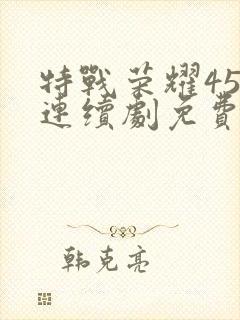 特戰荣耀45
連續劇免費
韩克亮